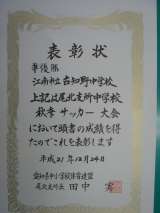 表彰状
準優勝
江南市立古知野中学校
上記は尾北支所中学校
秋季サッカー大会
において頭書の成績を得
たのでこれを表彰します
平成21年12月24日
愛知県小中学校体育連盟
尾北支所長 田中